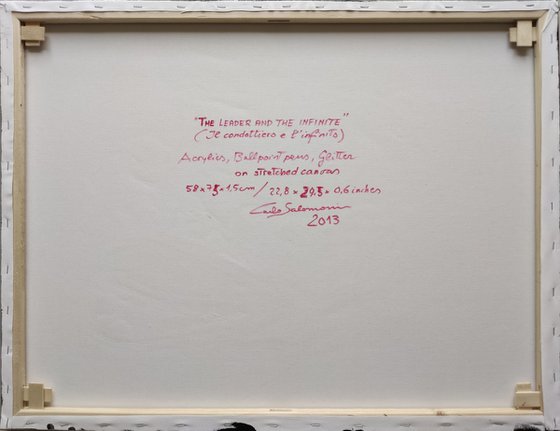 "THE LEADER AND THE INFINITE"
(Il condottiero e l'infinito)
Acrylics, Ballpoint pens, Glitter
on stretched canvas
58x75x1,5cm / 22,8 x 29.5 x 0,6 inches
Carlo Salomoni
2013